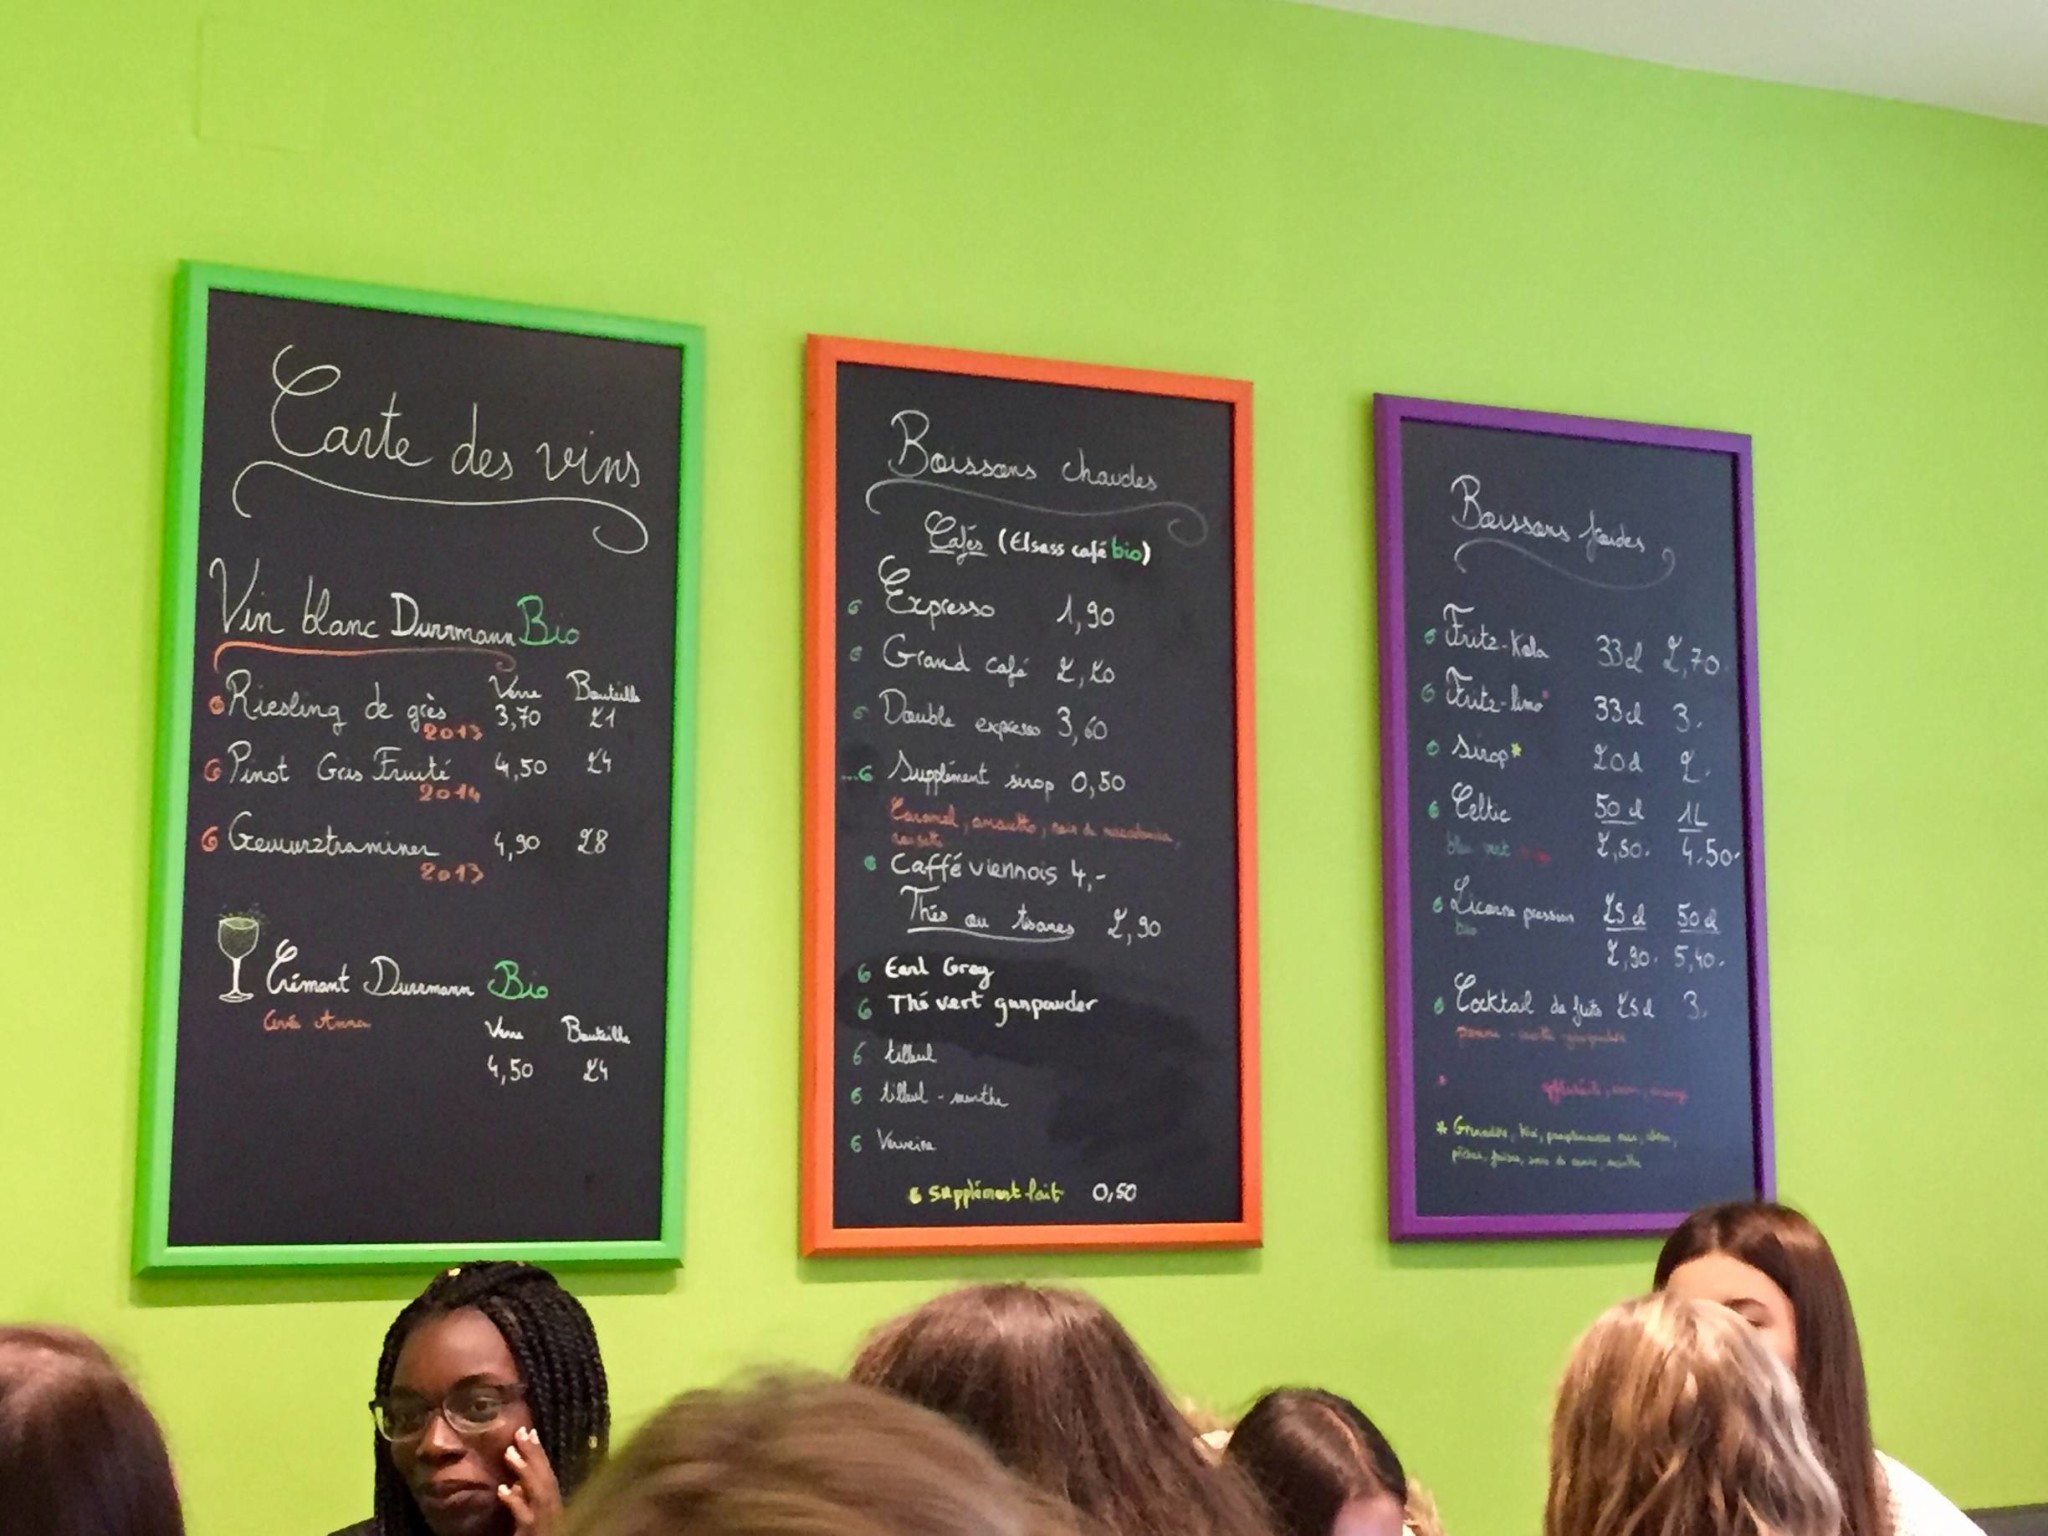 Carte des vins
Vin blanc Durrmann Bio
Verre Bouteille
Riesling de grès 3,70 21
2013
Pinot Gris Fruité 4,50 24
2014
Gewurztraminer 4,90 28
2013
Crémant Durrmann Bio
Cuvée Anna
Verre Bouteille
4,50 24
Boissons chaudes
Cafés (Elsass café bio)
Expresso 1,90
Grand café 2,20
Double expresso 3,60
Supplément sirop 0,50
Caramel, amaretto, noix de macadamia,
noisette
Caffé viennois 4,-
Thés ou tisanes 2,90
Earl Grey
Thé vert gunpowder
tilleul
tilleul - menthe
Verveine
supplément lait 0,50
Boissons froides
Fritz-Kola 33cl 2,70.
Fritz-limo* 33cl 3.
Sirop* 20cl 2.
Celtic 50 cl 1L
bleu vert 2,50. 4.50.
Licorne pression 25 cl 50 cl
bio 2,90. 5,40.
Cocktail de fruits 25 cl 3.
* Grenadine, kiwi, pamplemousse rose, citron,
pêche, fraise, menthe